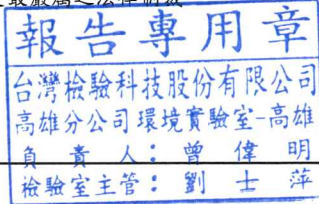 最嚴厲之法律制裁
報告專用章
台灣檢驗科技股份有限公司
高雄分公司環境實驗室-高雄
負責人：曾偉明
檢驗室主管：劉士萍